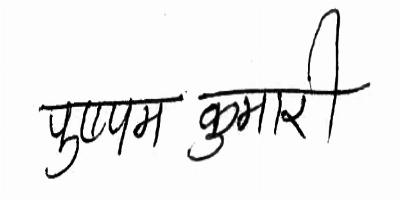 पुष्पम कुमारी